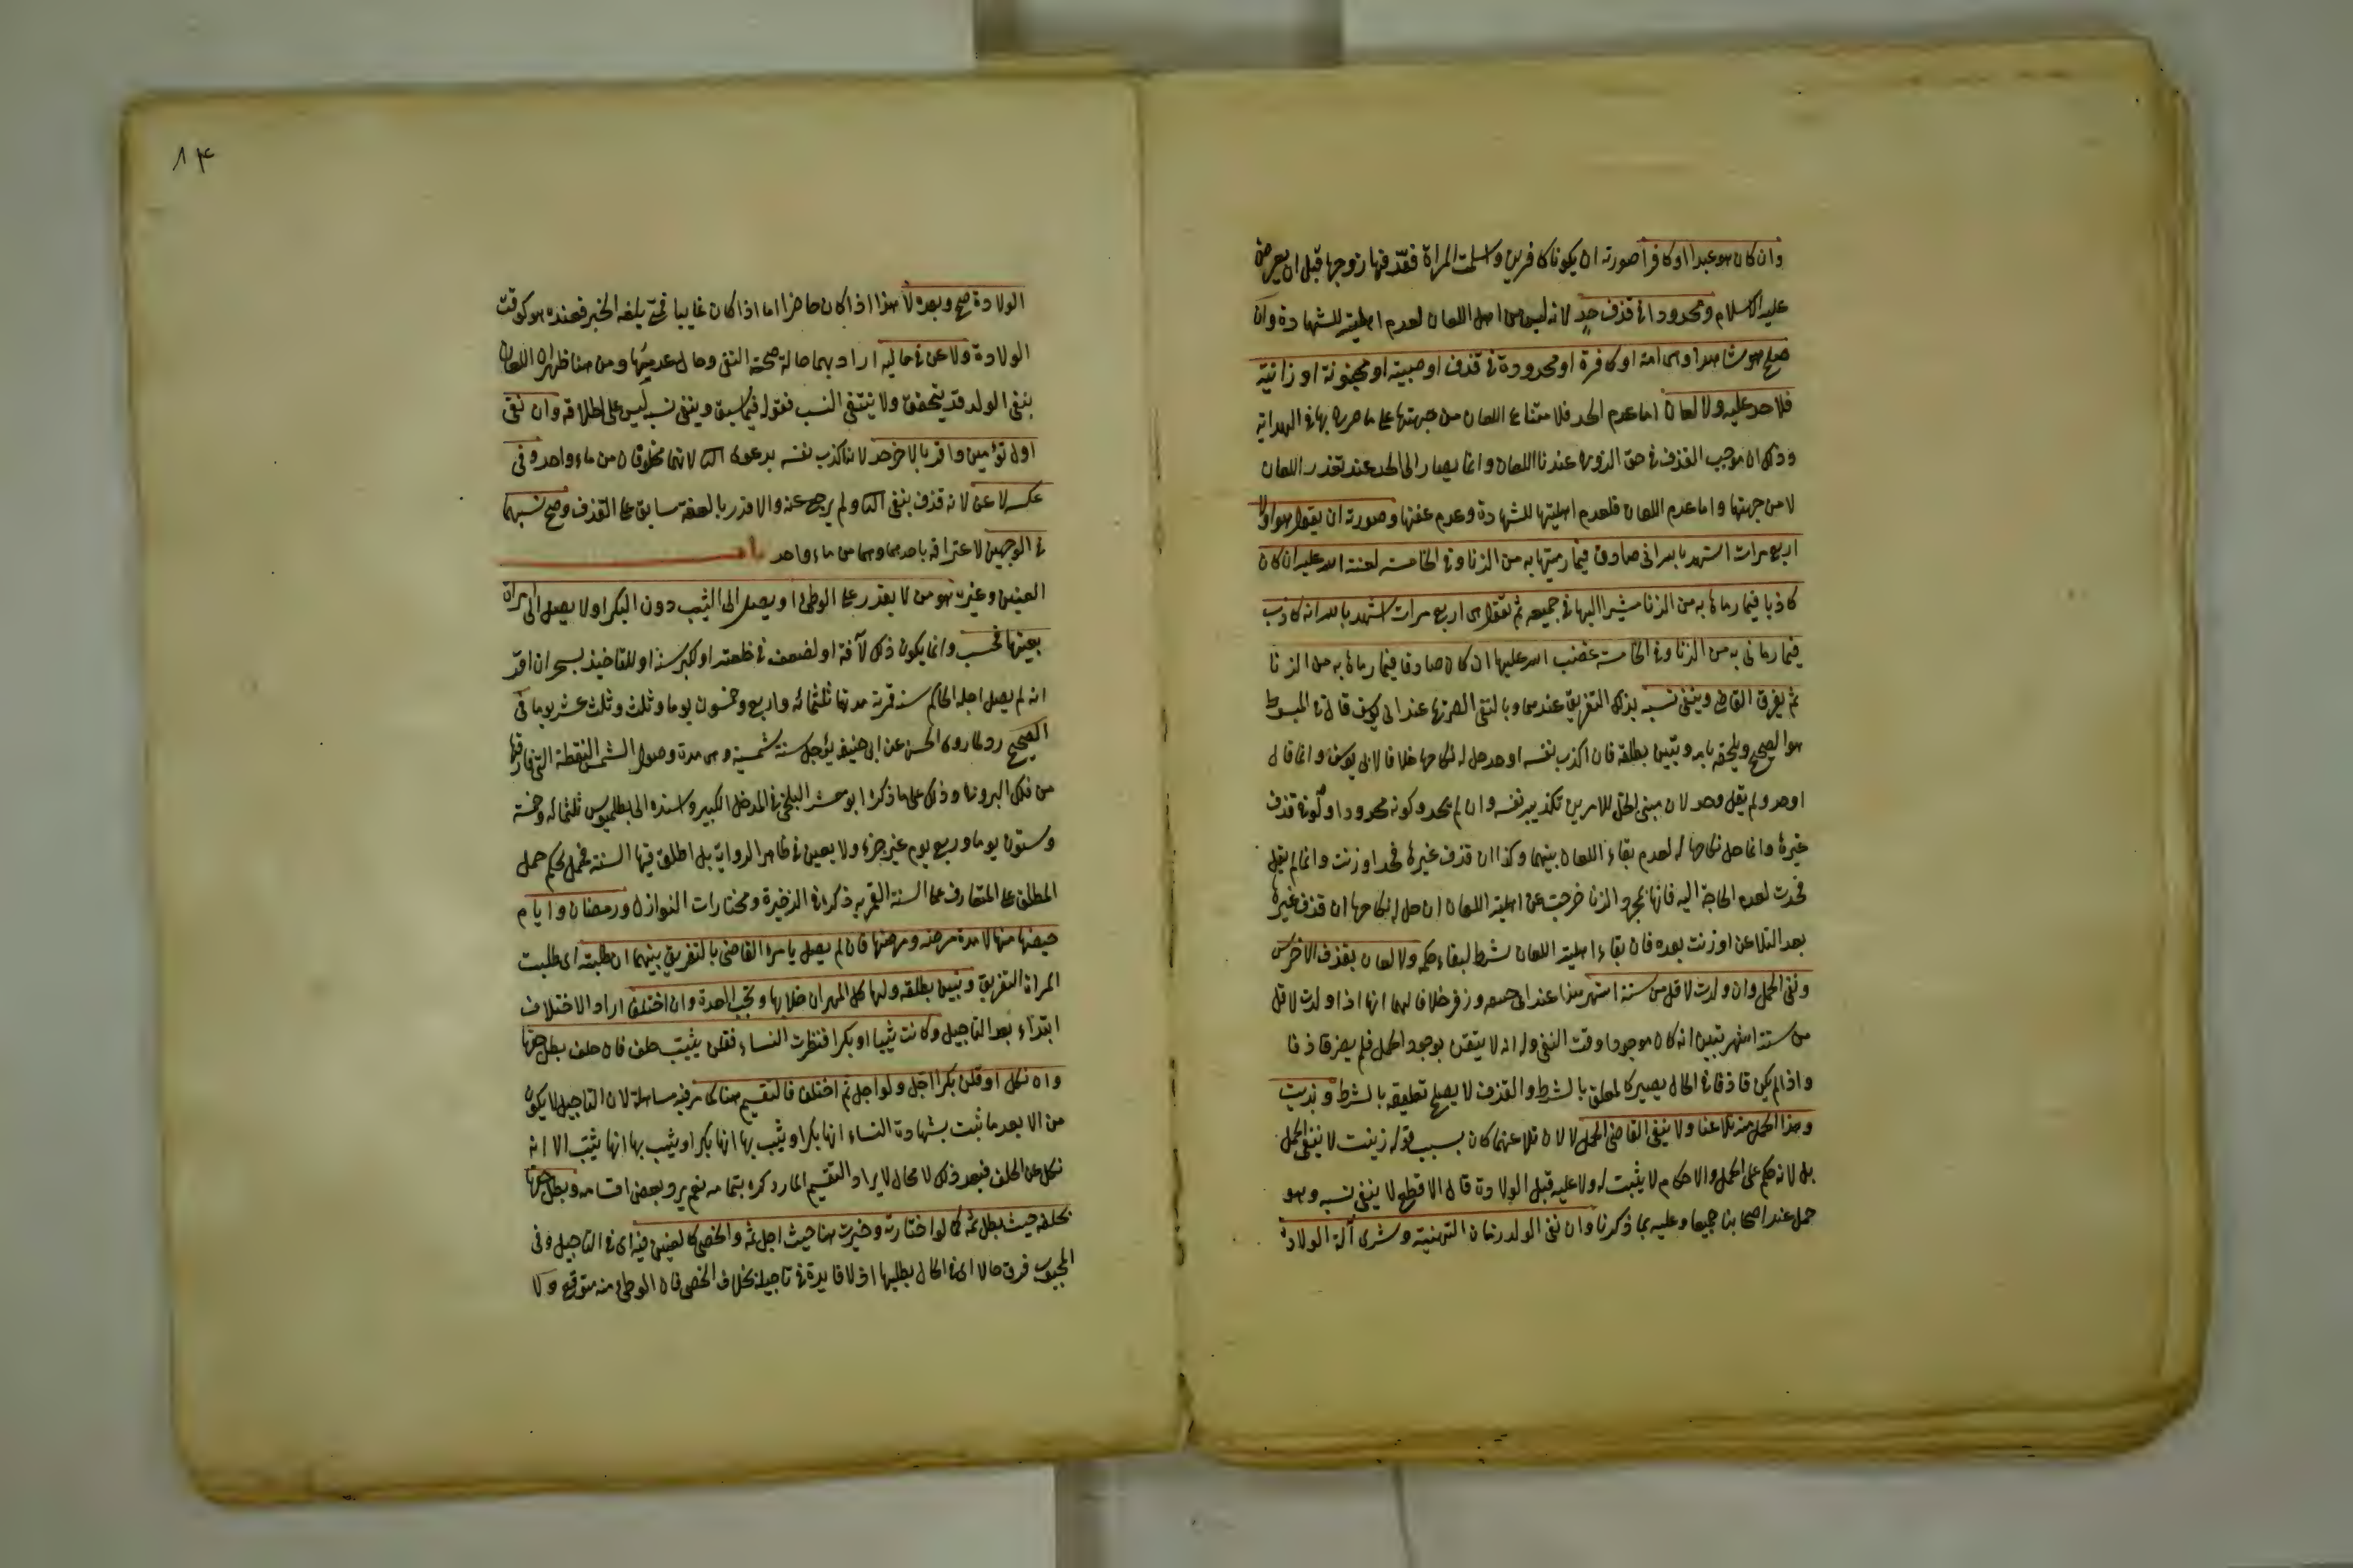 وان كان هو عبدا او كافرا صورته ان يكونا كافرين واسلمت المراة فقذفها زوجها قبل ان يعرض
عليه الاسلام او محدودا في قذف حد لانه ليس من اهل اللعان لعدم اهليته للشهادة وان
صلح هو شاهدا وهي امة او كافرة او محدودة في قذف او صبية او مجنونة او زانية
فلا حد عليه ولا لعان اما عدم الحد فلامتناع اللعان من جهتها على ما صرح بها في الهداية
وذلك ان موجب القذف في حق الزوج عندنا اللعان وانما يصار الى الحد عند تعذر اللعان
لا من جهتها واما عدم اللعان فلعدم اهليتها للشهادة وعدم عفتها وصورته ان يقول هو اولا
اربع مرات اشهد بالله اني صادق فيما رميتها به من الزنا وفي الخامسة لعنة الله عليه ان كان
كاذبا فيما رماها به من الزنا مشيرا اليها في جميعه ثم تقول هي اربع مرات اشهد بالله انه كاذب
فيما رماني به من الزنا وفي الخامسة غضب الله عليها ان كان صادقا فيما رماها به من الزنا
ثم يفرق القاضي وينفي نسبه بذلك التفريق عندهما وبالنفي الصريح عند ابي يوسف قال في المبسوط
هو الصحيح ويلحقه بامه وتبين بطلقة فان اكذب نفسه او حد حل له نكاحها خلافا لابي يوسف وانما قال
او حد ولم يقل وحد لان مبنى الحل للامرين تكذيبه نفسه وان لم يحد وكونه محدودا ولو في قذف
غيرها وانما حل نكاحها له لعدم بقاء اللعان بينهما وكذا ان قذف غيرها فحد او زنت وانما لم يقل
فحدت لعدم الحاجة اليه فانها بمجرد الزنا خرجت عن اهلية اللعان ان حل له نكاحها ان قذف غيرها
بعد التلاعن او زنت بعده فان بقاء اهلية اللعان شرط لبقاء حكمه ولا لعان بقذف الاخرس
ونفي الحمل وان ولدت لاقل من ستة اشهر هذا عند ابي حنيفة وزفر خلافا لهما انها اذا ولدت لاقل
من ستة اشهر تبين انه كان موجودا وقت النفي وله انه لا يتيقن بوجود الحمل فلم يصر قاذفا
واذا لم يكن قاذفا في الحال يصير كالمعلق بالشرط والقذف لا يصح تعليقه بالشرط وبزنيت
وهذا الحمل منه تلاعنا ولا ينفي القاضي الحمل لا لان تلاعنهما كان بسبب قوله زنيت لا بنفي الحمل
بل لانه حكم على الحمل والاحكام لا يثبت له ولا عليه قبل الولادة قال الاقطع لا ينفي نسبه وهو
حمل عند اصحابنا جميعا وعليه بما ذكرنا وان نفى الولد زمان التهنية وشرى آلة الولادة
١٣
الولادة صح وبعده لا هذا اذا كان حاضرا اما اذا كان غايبا فحتى يلغه الخبر فعنده هو كوقت
الولادة ولاعن في حاليه اراد بهما حالة صحة النفي وحال عدمها ومن هنا ظهر ان اللعان
بنفي الولد قد يتحقق ولا ينتفي النسب فقوله فيما سبق وينفي نسبه ليس على اطلاقه وان نفى
اول توأمين واقر بالاخر حد لانه اكذب نفسه بدعوى الثاني لانهما مخلوقان من ماء واحد وفي
عكسه لاعن لانه قذف بنفي الثاني ولم يرجع عنه والاقرار بالعفة سابق على القذف وصح نسبهما
في الوجهين لاعترافه باحدهما وهما من ماء واحد باب
العنين وغيره هو من لا يقدر على الوطئ او يصل الى الثيب دون البكر او لا يصل الى امراة
بعينها فحسب وانما يكون ذلك لآفة او لضعف في خلقته او لكبر سنه او للتاخيذ بسحر ان اقر
انه لم يصل اجله الحاكم سنة قمرية مدتها ثلثمائة واربع وخمسون يوما وثلث وثلث عشر يوما في
الصحيح رد لما روى الحسن عن ابي حنيفة يؤجل سنة شمسية وهي مدة وصول الشمس النقطة التي فارقتها
من فلك البروج وذلك على ما ذكره ابو معشر البلخي في المدخل الكبير واسنده الى بطلميوس ثلثمائة وخمسة
وستون يوما وربع يوم غير جزء ولا يعين في ظاهر الرواية بل اطلق فيها السنة فحمل بحكم حمل
المطلق على المتعارف على السنة القمرية ذكره في الذخيرة ومختارات النوازل ورمضان وايام
حيضها منها لا مدة مرضه ومرضها فان لم يصل يامره القاضي بالتفريق بينهما ان طلبته اي طلبت
المراة التفريق وتبين بطلقة ولها كل المهر ان خلا بها وتجب العدة وان اختلفا اراد الاختلاف
ابتداء بعد التاجيل وكانت ثيبا او بكرا فنظرت النساء فقلن ثيبت حلف فان حلف بطل حقها
وان نكل او قلن بكر اجل ولو اجل ثم اختلفا فالتقسيم هنا كما مر فيه مساهلة لان التاجيل لا يكون
من الا بعد ما ثبت بشهادة النساء انها بكر او يثيب بها انها بكر او يثيب بها انها ثيب الا انه
نكل عن الحلف فبعد ذلك لا محال لا يراد التقسيم المار ذكره بتمامه نعم يرد بعض اقسامه وبطل حقها
بحلفه حيث بطل ثمه كما لو اختارته وخيرت هنا حيث اجل ثمه والخصي كالعنين فيه اى في التاجيل وفي
المجبوب فرق حالا اى في الحال بطلبها اذ لا فايدة في تاجيله بخلاف الخصي فان الوطئ منه متوقع ولا